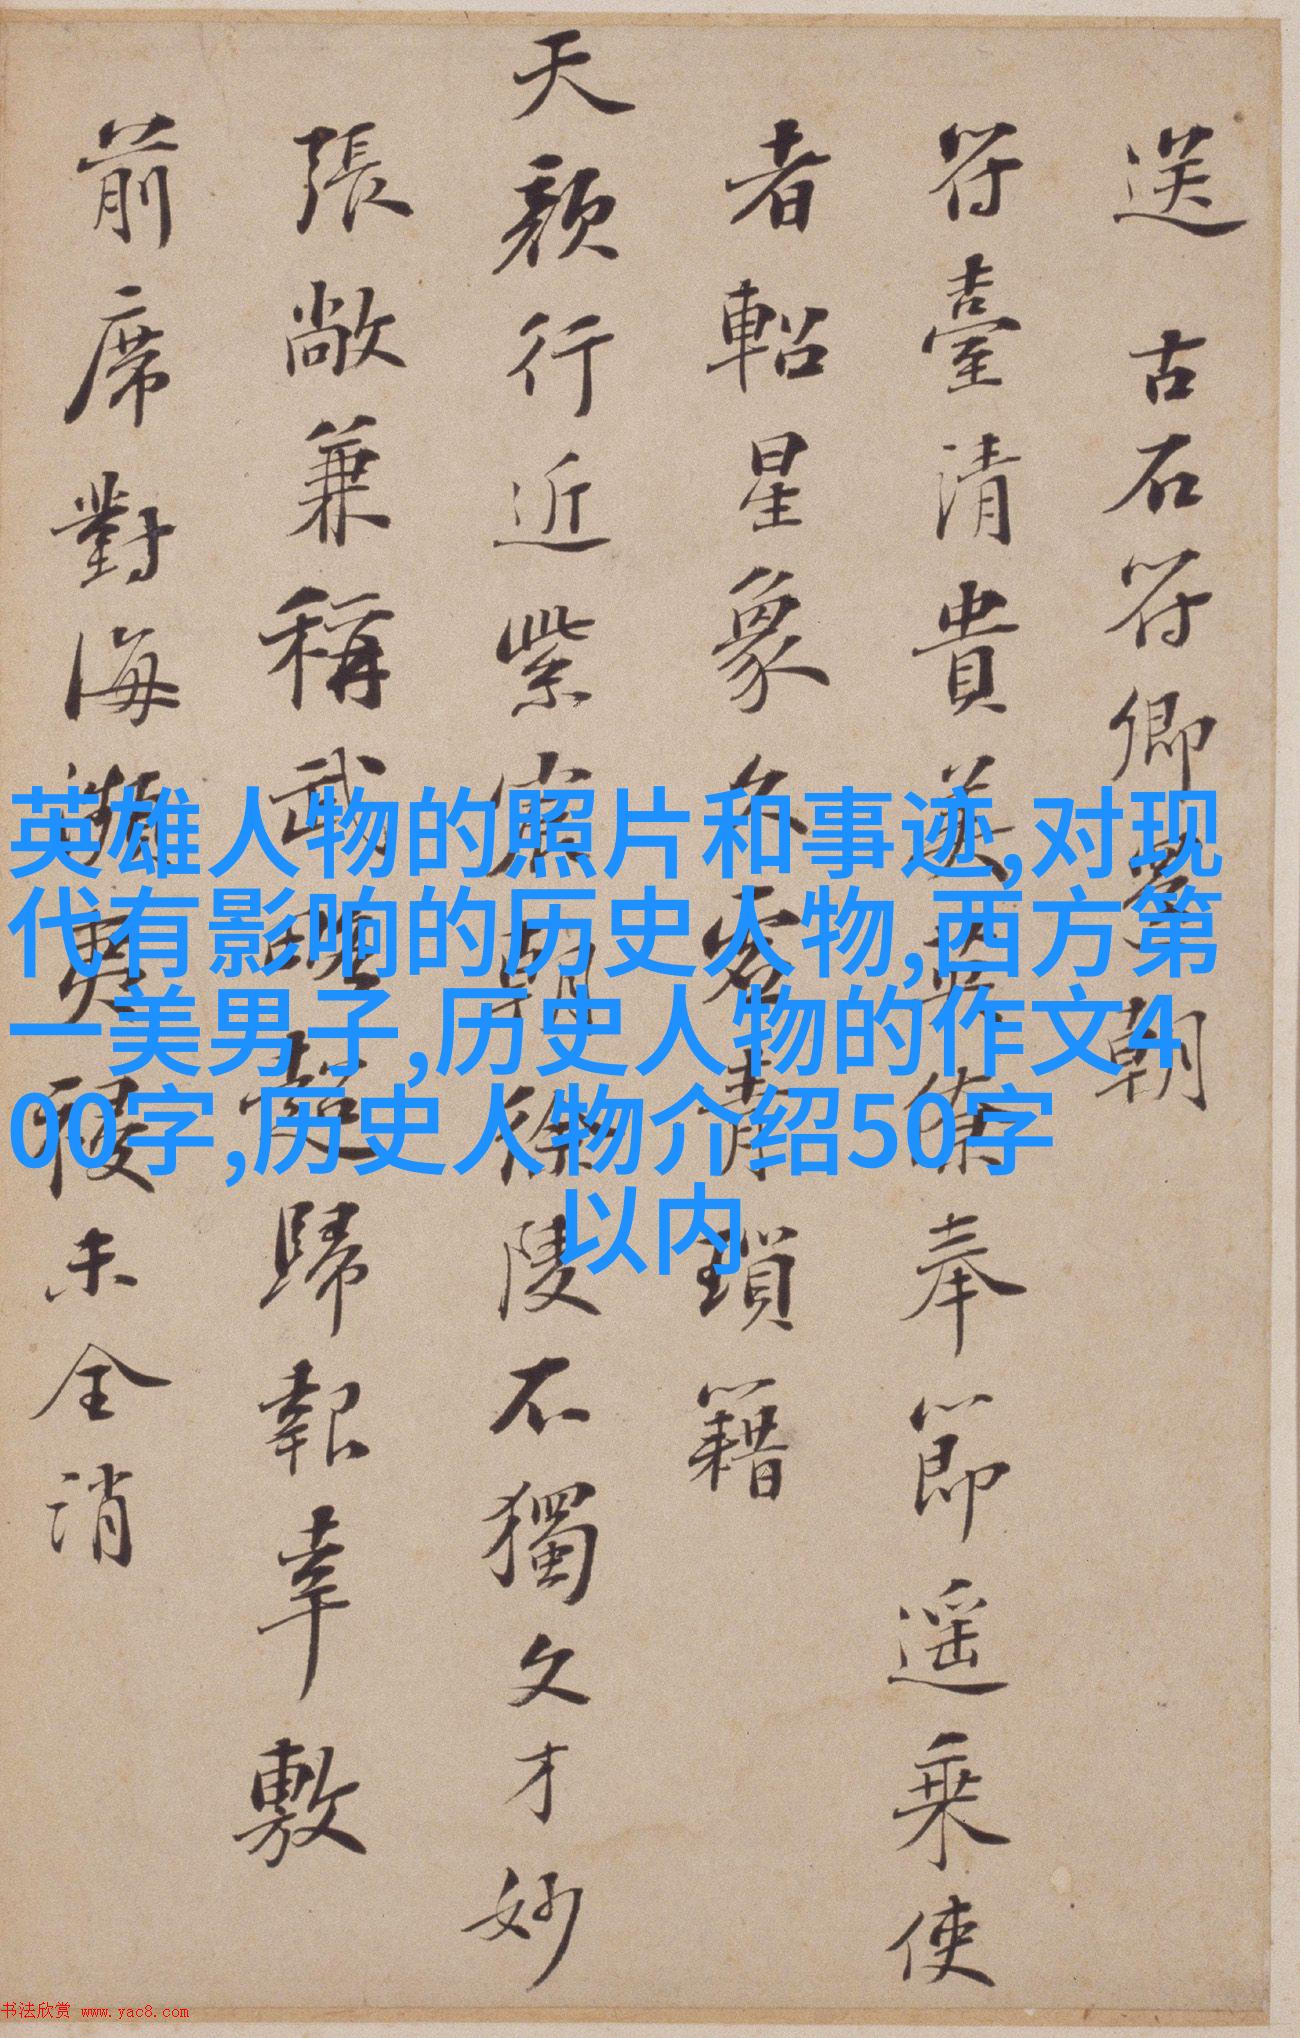 送 古石符卿 朝
符臺清貴 奉節遥乘使
者軺星象 瑣籍
天顏行近紫宸朝徐陵不獨文才妙
張敞兼稱武 歸報幸敷
前席對海 祲未全消
英雄人物的照片和事迹,对现
代有影响的历史人物,西方第
一美男子,历史人物的作文4
00字,历史人物介绍50字
以内
书法欣赏 www.yac8.com